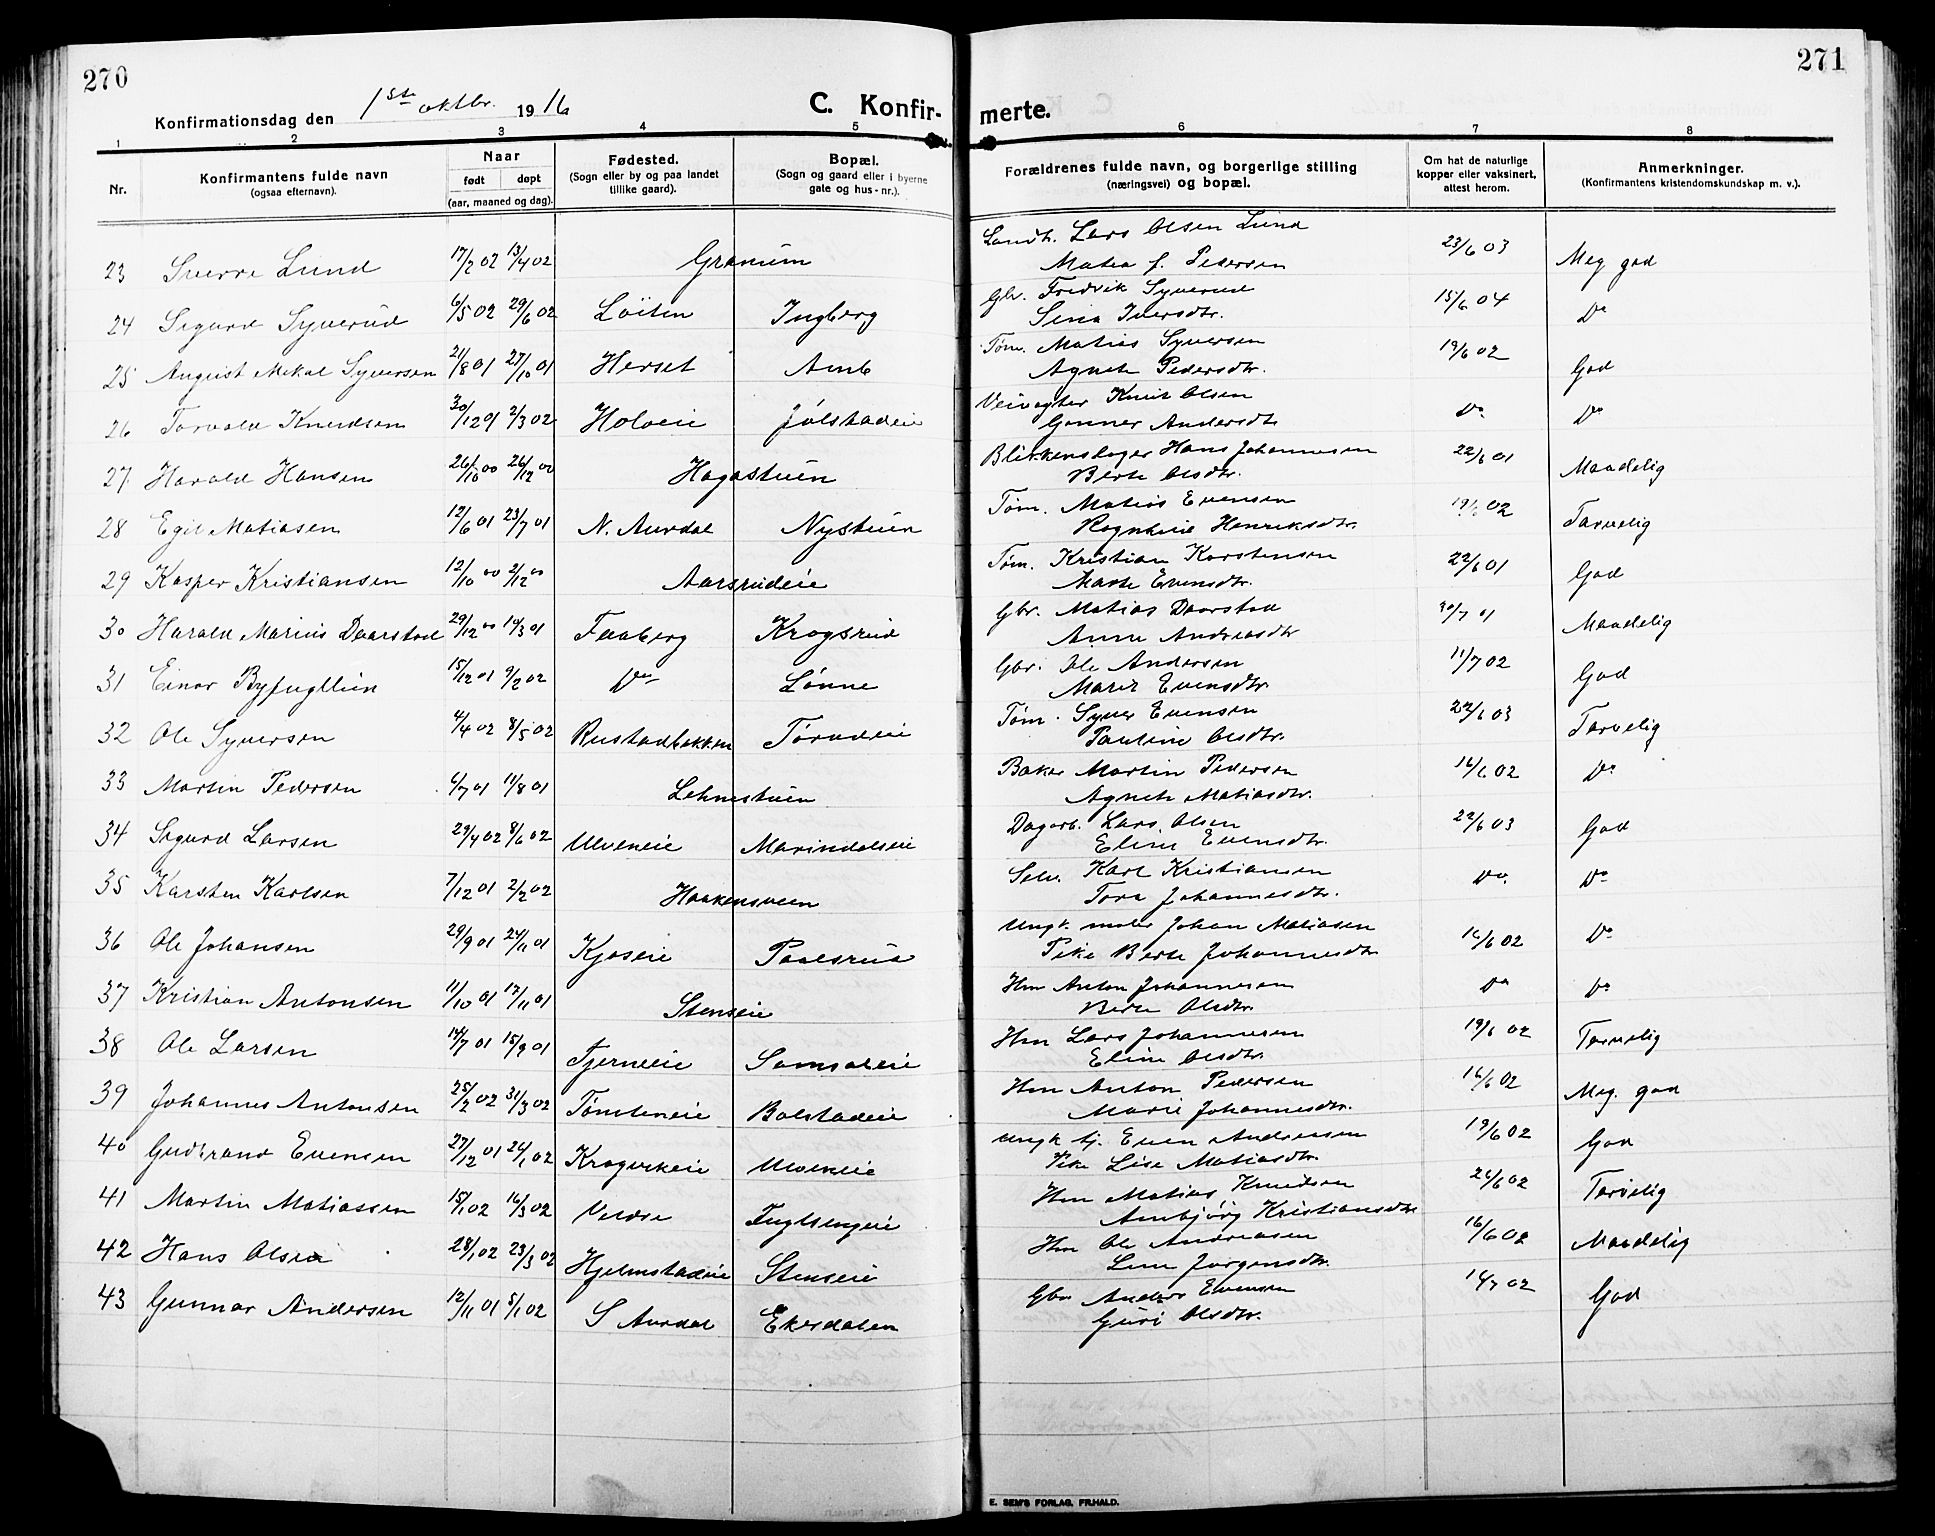 270
271
Konfirmationsdag den 1ste oktbr. 1916
C. Konfir-
merte.
1 2 3 4 5 6 7 8
Nr.
Konfirmantens fulde navn
(ogsaa efternavn).
Naar
født døpt
(aar, maaned og dag).
Fødested.
(Sogn eller by og paa landet
tillike gaard).
Bopæl.
(Sogn og gaard eller i byerne
gate og hus-nr.).
Forældrenes fulde navn, og borgerlige stilling
(næringsvei) og bopæl.
Om hat de naturlige
kopper eller vaksinert,
attest herom.
Anmerkninger.
(Konfirmantens kristendomskundskap m. v.).
23 Sverre Lund 17/2 02 13/4 02 Granum Landh. Lars Olsen Lund 23/6 03 Meg god
Matea f. Pedersen
24 Sigurd Syverud 6/5 02 29/6 02 Löiten Ingberg Gbr. Fredrik Syverud 15/6 04 Do
Sina Iversdtr.
25 August Mikal Syversen 21/8 01 27/10 01 Herset Amb Tøm. Matias Syversen 19/6 02 God
Agnete Pedersdtr.
26 Torvald Knudsen 30/12 01 2/3 02 Holveie Jølstadeie Veivogter Knut Olsen Do Do
Gunner Andersdtr
27 Harald Hansen 26/10 00 26/12 00 Hagastuen Blikkenslager Hans Johannesen 22/6 01 Maadelig
Berte Olsdtr.
28 Egil Matiasen 12/6 01 23/7 01 N. Aurdal Nystuen Tøm. Matias Evensen 19/6 02 Tarvelig
Ragnheid Henriksdtr.
29 Kasper Kristiansen 12/10 00 2/12 00 Aarsrudeie Tøm. Kristian Karstensen 22/6 01 God
Marte Evensdtr.
30 Harald Marius Daarstad 29/12 00 10/3 01 Faaberg Krogsrud Gbr. Matias Daarstad 30/7 01 Maadelig
Anne Andreasdtr
31 Einar Byfuglien 15/12 01 9/2 02 Do Lønne Gbr. Ole Andersen 11/7 02 God
Marit Evensdtr.
32 Ole Syversen 4/4 02 8/5 02 Rustadbakken Tørudeie Tøm. Syver Evensen 22/6 03 Tarvelig
Pauline Olsdtr.
33 Martin Pedersen 6/7 01 11/8 01 Lehnestuen Baker Martin Pedersen 16/6 02 Do
Agnete Matiasdtr.
34 Sigurd Larsen 29/4 02 8/6 02 Ulveneie Marindaleie Dagarb. Lars Olsen 22/6 03 God
Eline Evensdtr.
35 Karsten Karlsen 7/12 01 2/2 02 Haakensveen Selv. Karl Kristiansen Do. Do
Tora Johannesdtr.
36 Ole Johansen 29/9 01 24/11 01 Kjoseie Paalsrud Ungk. maler Johan Matiasen 16/6 02 Do
Pike Berte Johannesdtr
37 Kristian Antonsen 11/10 01 17/11 01 Stenseie Hm Anton Johannesen Do Do
Berte Olsdtr.
38 Ole Larsen 14/7 01 15/9 01 Tjerneeie Samsaleie Hm Lars Johannesen 19/6 02 Tarvelig
Eline Olsdtr.
39 Johannes Antonsen 25/2 02 31/3 02 Tømteneie Bolstadeie Hm Anton Pedersen 16/6 02 Meg. god
Marie Johannesdtr.
40 Gudbrand Evensen 27/12 01 26/1 02 Krogvikeie Ulveneie Ungk tj. Even Andreasen 19/6 02 God
Pike Lise Matiasdtr.
41 Martin Matiassen 15/1 02 16/3 02 Veldre Fuglsengeie Hm Matias Knudsen 26/6 02 Tarvelig
Ambjörg Kristiansdtr
42 Hans Olsen 28/1 02 23/3 02 Hjelmstadeie Stenseie Hm Ole Andreasen 16/6 02 Maadelig
Line Jørgensdtr.
43 Gunnar Andersen 12/11 01 5/1 02 S Aurdal Ekerdalen Gbr Anders Evensen 14/7 02 God
Guri Olsdtr.
E. SEM'S FORLAG, FR.HALD.